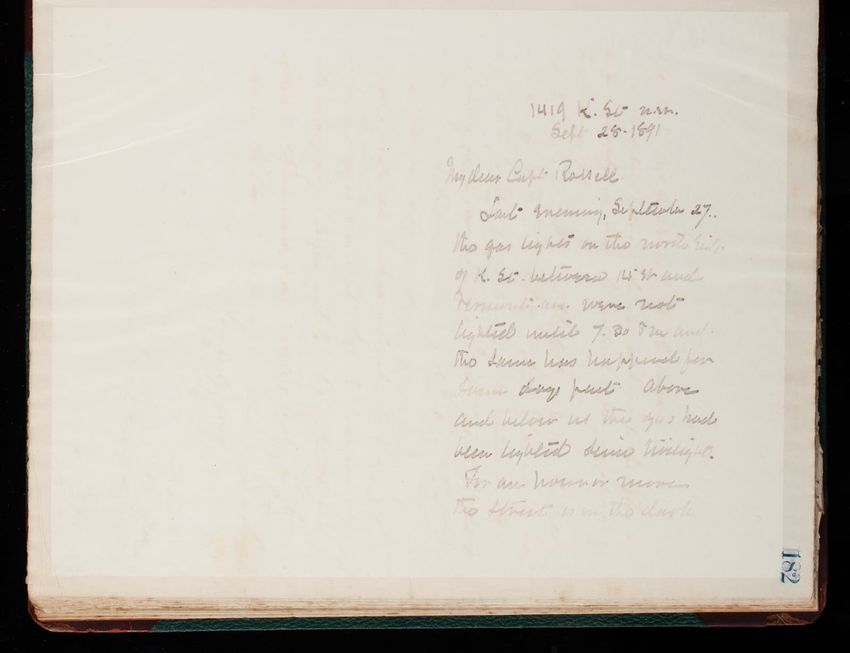 1419 K. St N.W.
Sept 28-1891
My dear Capt Rossell
Last evening, September 27.
the gas lights on the north side
of K. St. between 14 St and
Vermont ave. were not
lighted until 7.30 PM and
the same has happened for
some days past Above
and below us the gas had
been lighted since twilight.
For an hour or more
the street is in the dark
182